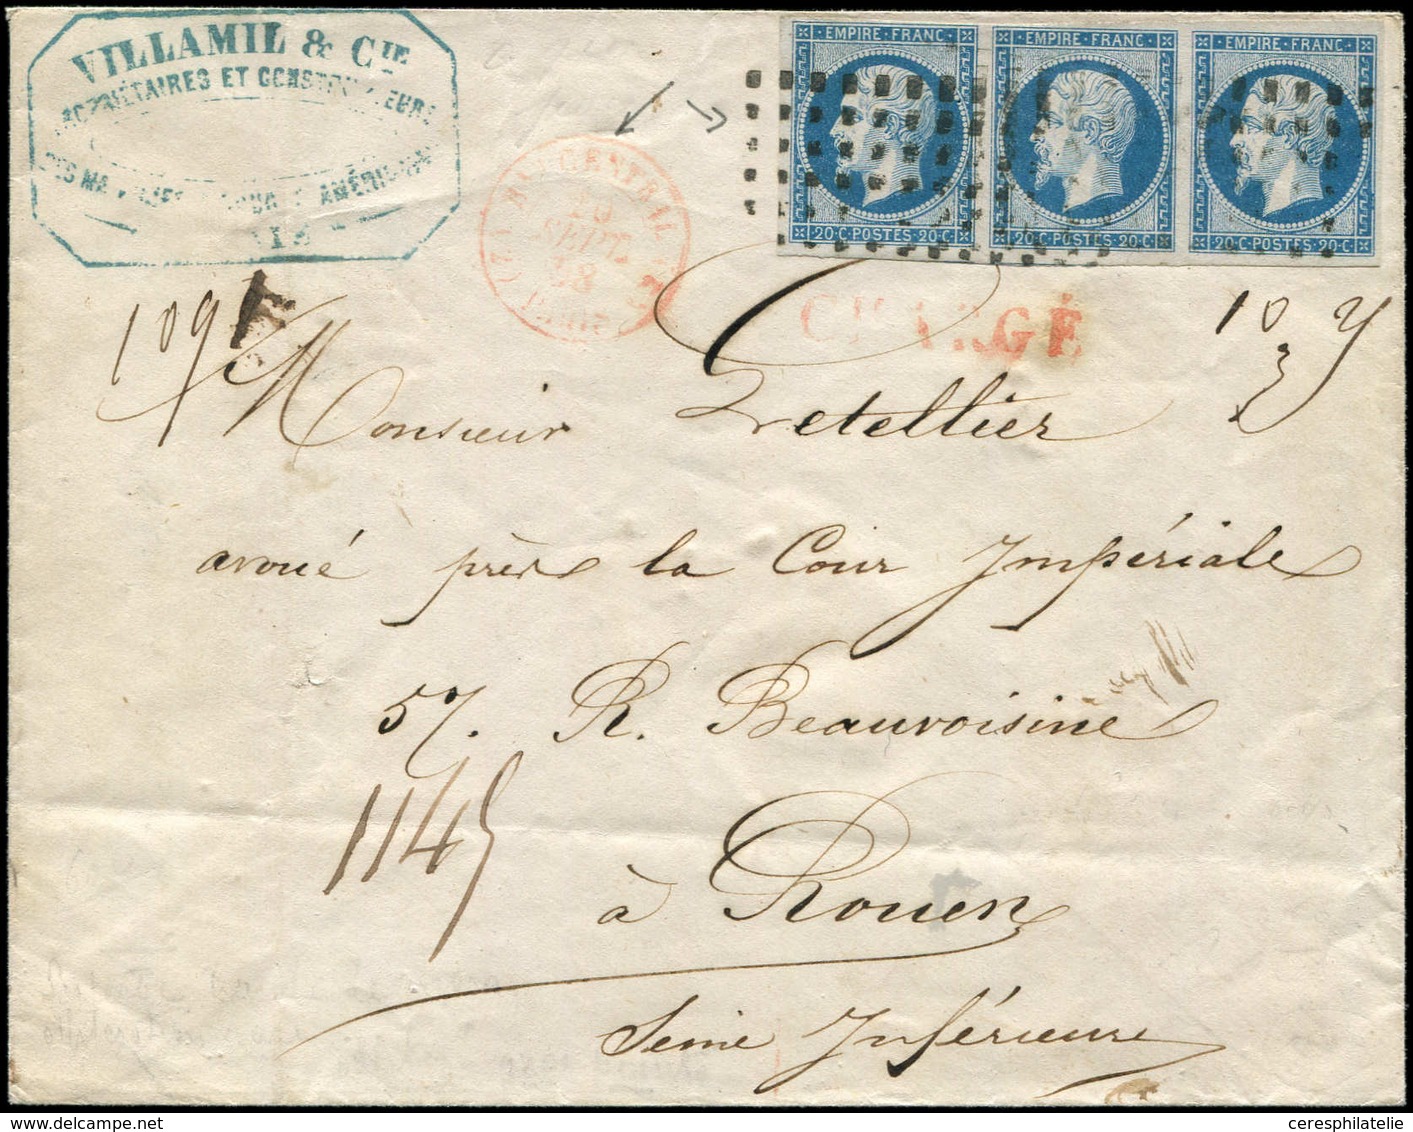 VILLAMIL & CIE
PROPRIÉTAIRES ET CONSTRUCTEURS
EMPIRE FRANC
20·C·POSTES·20·C
EMPIRE FRANC
20·C·POSTES·20·C
EMPIRE FRANC
20·C·POSTES·20·C
CENTRAL
SEPT.
58
CHARGÉ
109
10
Monsieur Letellier
avoué près la Cour Impériale
57. R. Beauvoisine
1145
à Rouen
Seine Inférieure
www.delcampe.net
ceresphilatelie